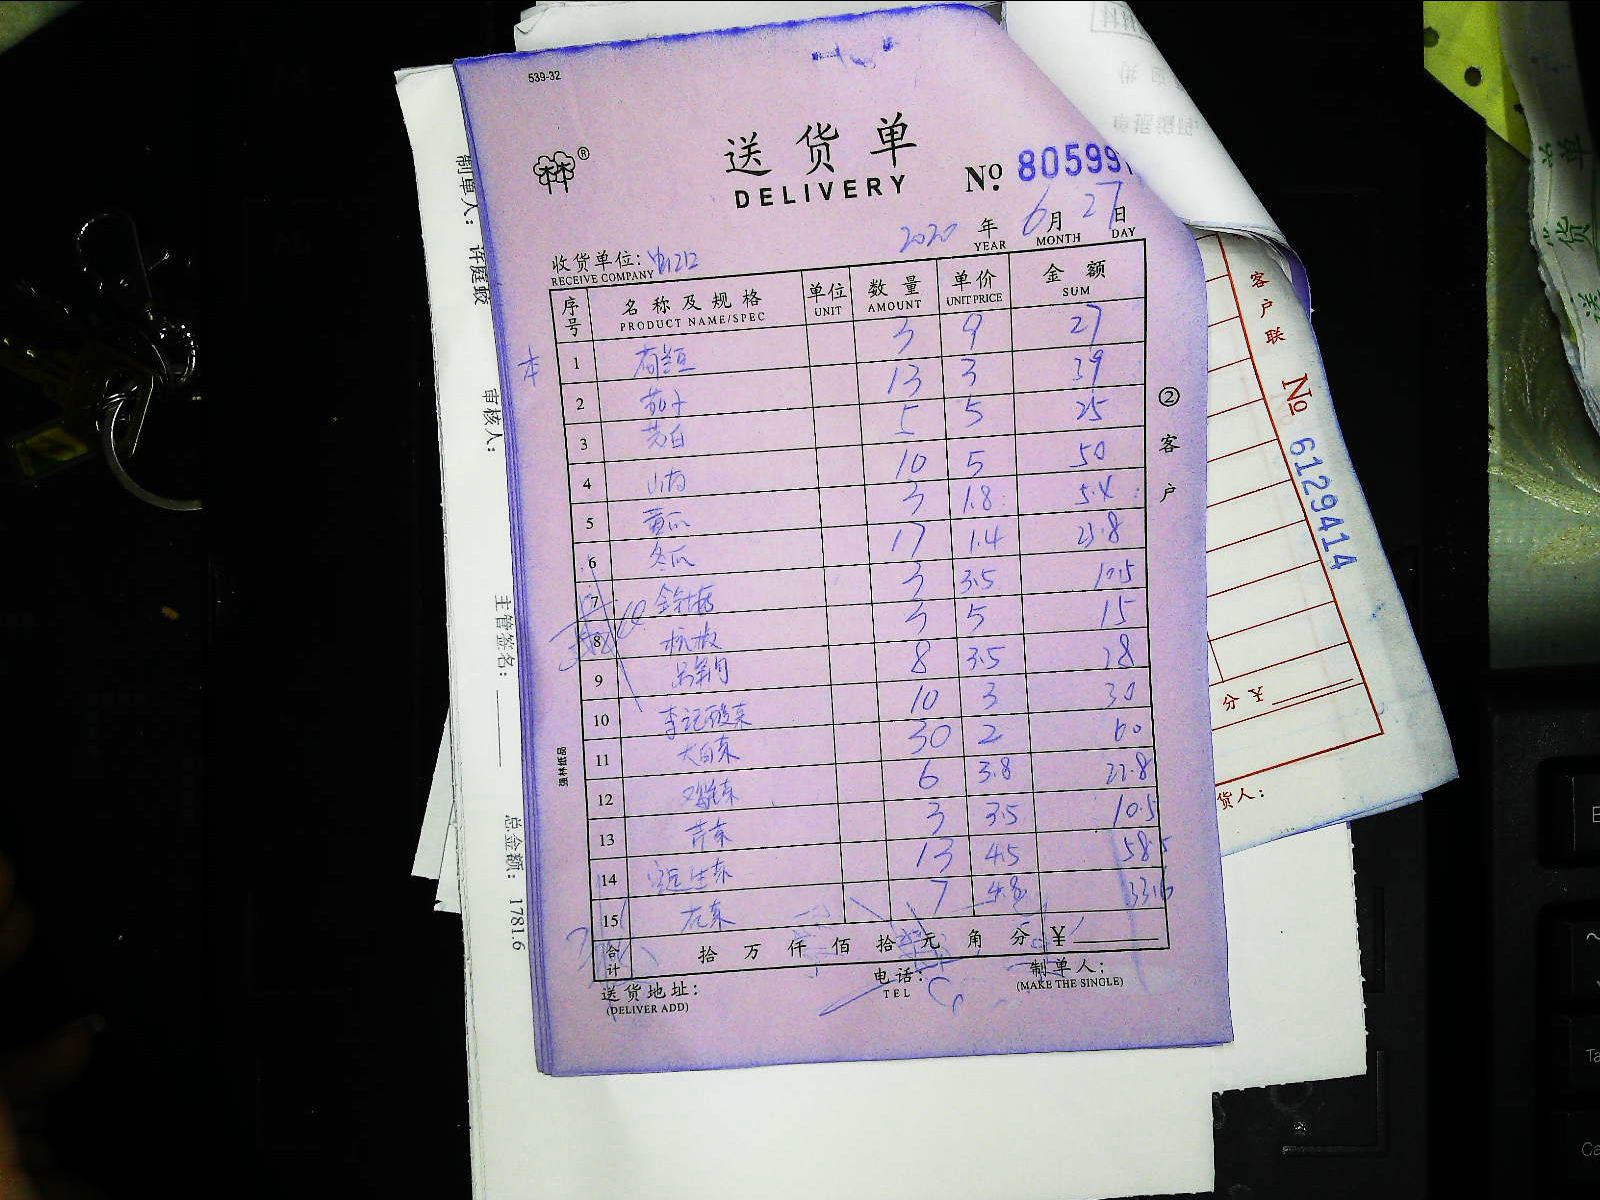 539-32
送货单
DELIVERY
No. 80599
2020 年 6月 27日
YEAR MONTH DAY
收货单位:
RECEIVE COMPANY
序号 名称及规格 单位 数量 单价 金额
PRODUCT NAME/SPEC UNIT AMOUNT UNIT PRICE SUM
1 3 9 27
2 茄子 13 3 39
3 5 5 25
4 10 5 50
5 黄瓜 3 1.8 5.4
6 冬瓜 17 1.4 23.8
7 金针菇 3 3.5 10.5
8 杭椒 3 5 15
9 8 3.5 28
10 李记酸菜 10 3 30
11 大白菜 30 2 60
12 6 3.8 22.8
13 芹菜 3 3.5 10.5
14 生菜 13 4.5 58.5
15 花菜 7 4.8 33.6
合计 拾 万 仟 佰 拾 元 角 分 ¥
送货地址:
(DELIVER ADD)
电话:
TEL
制单人:
(MAKE THE SINGLE)
②客户
强林纸品
制单人: 许庭蛟
审核人:
主管签名:
总金额: 1781.6
客户联
No 6129414
分 ¥
货人: